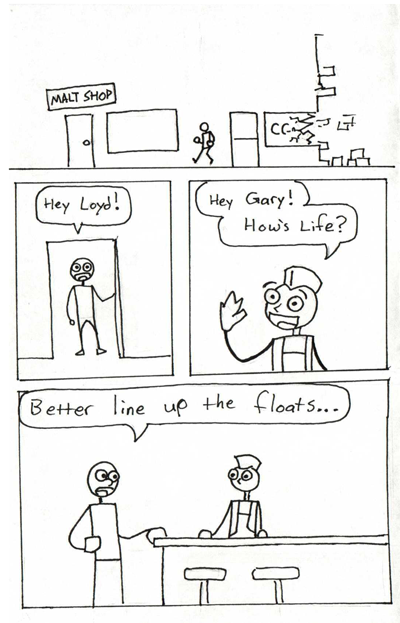 MALT SHOP
CC
Hey Loyd!
Hey Gary!
How's Life?
Better line up the floats...